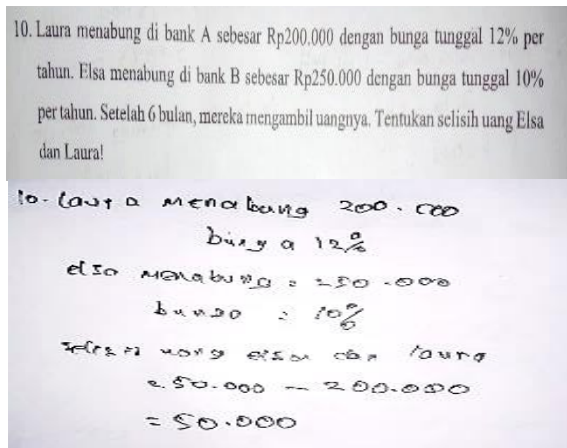 10. Laura menabung di bank A sebesar Rp200.000 dengan bunga tunggal 12% per
tahun. Elsa menabung di bank B sebesar Rp250.000 dengan bunga tunggal 10%
per tahun. Setelah 6 bulan, mereka mengambil uangnya. Tentukan selisih uang Elsa
dan Laura!
10. Laura menabung 200.000
bunga 12%
elsa menabung = 250.000
bunga = 10%
selisih uang elsa dan laura
250.000 - 200.000
= 50.000